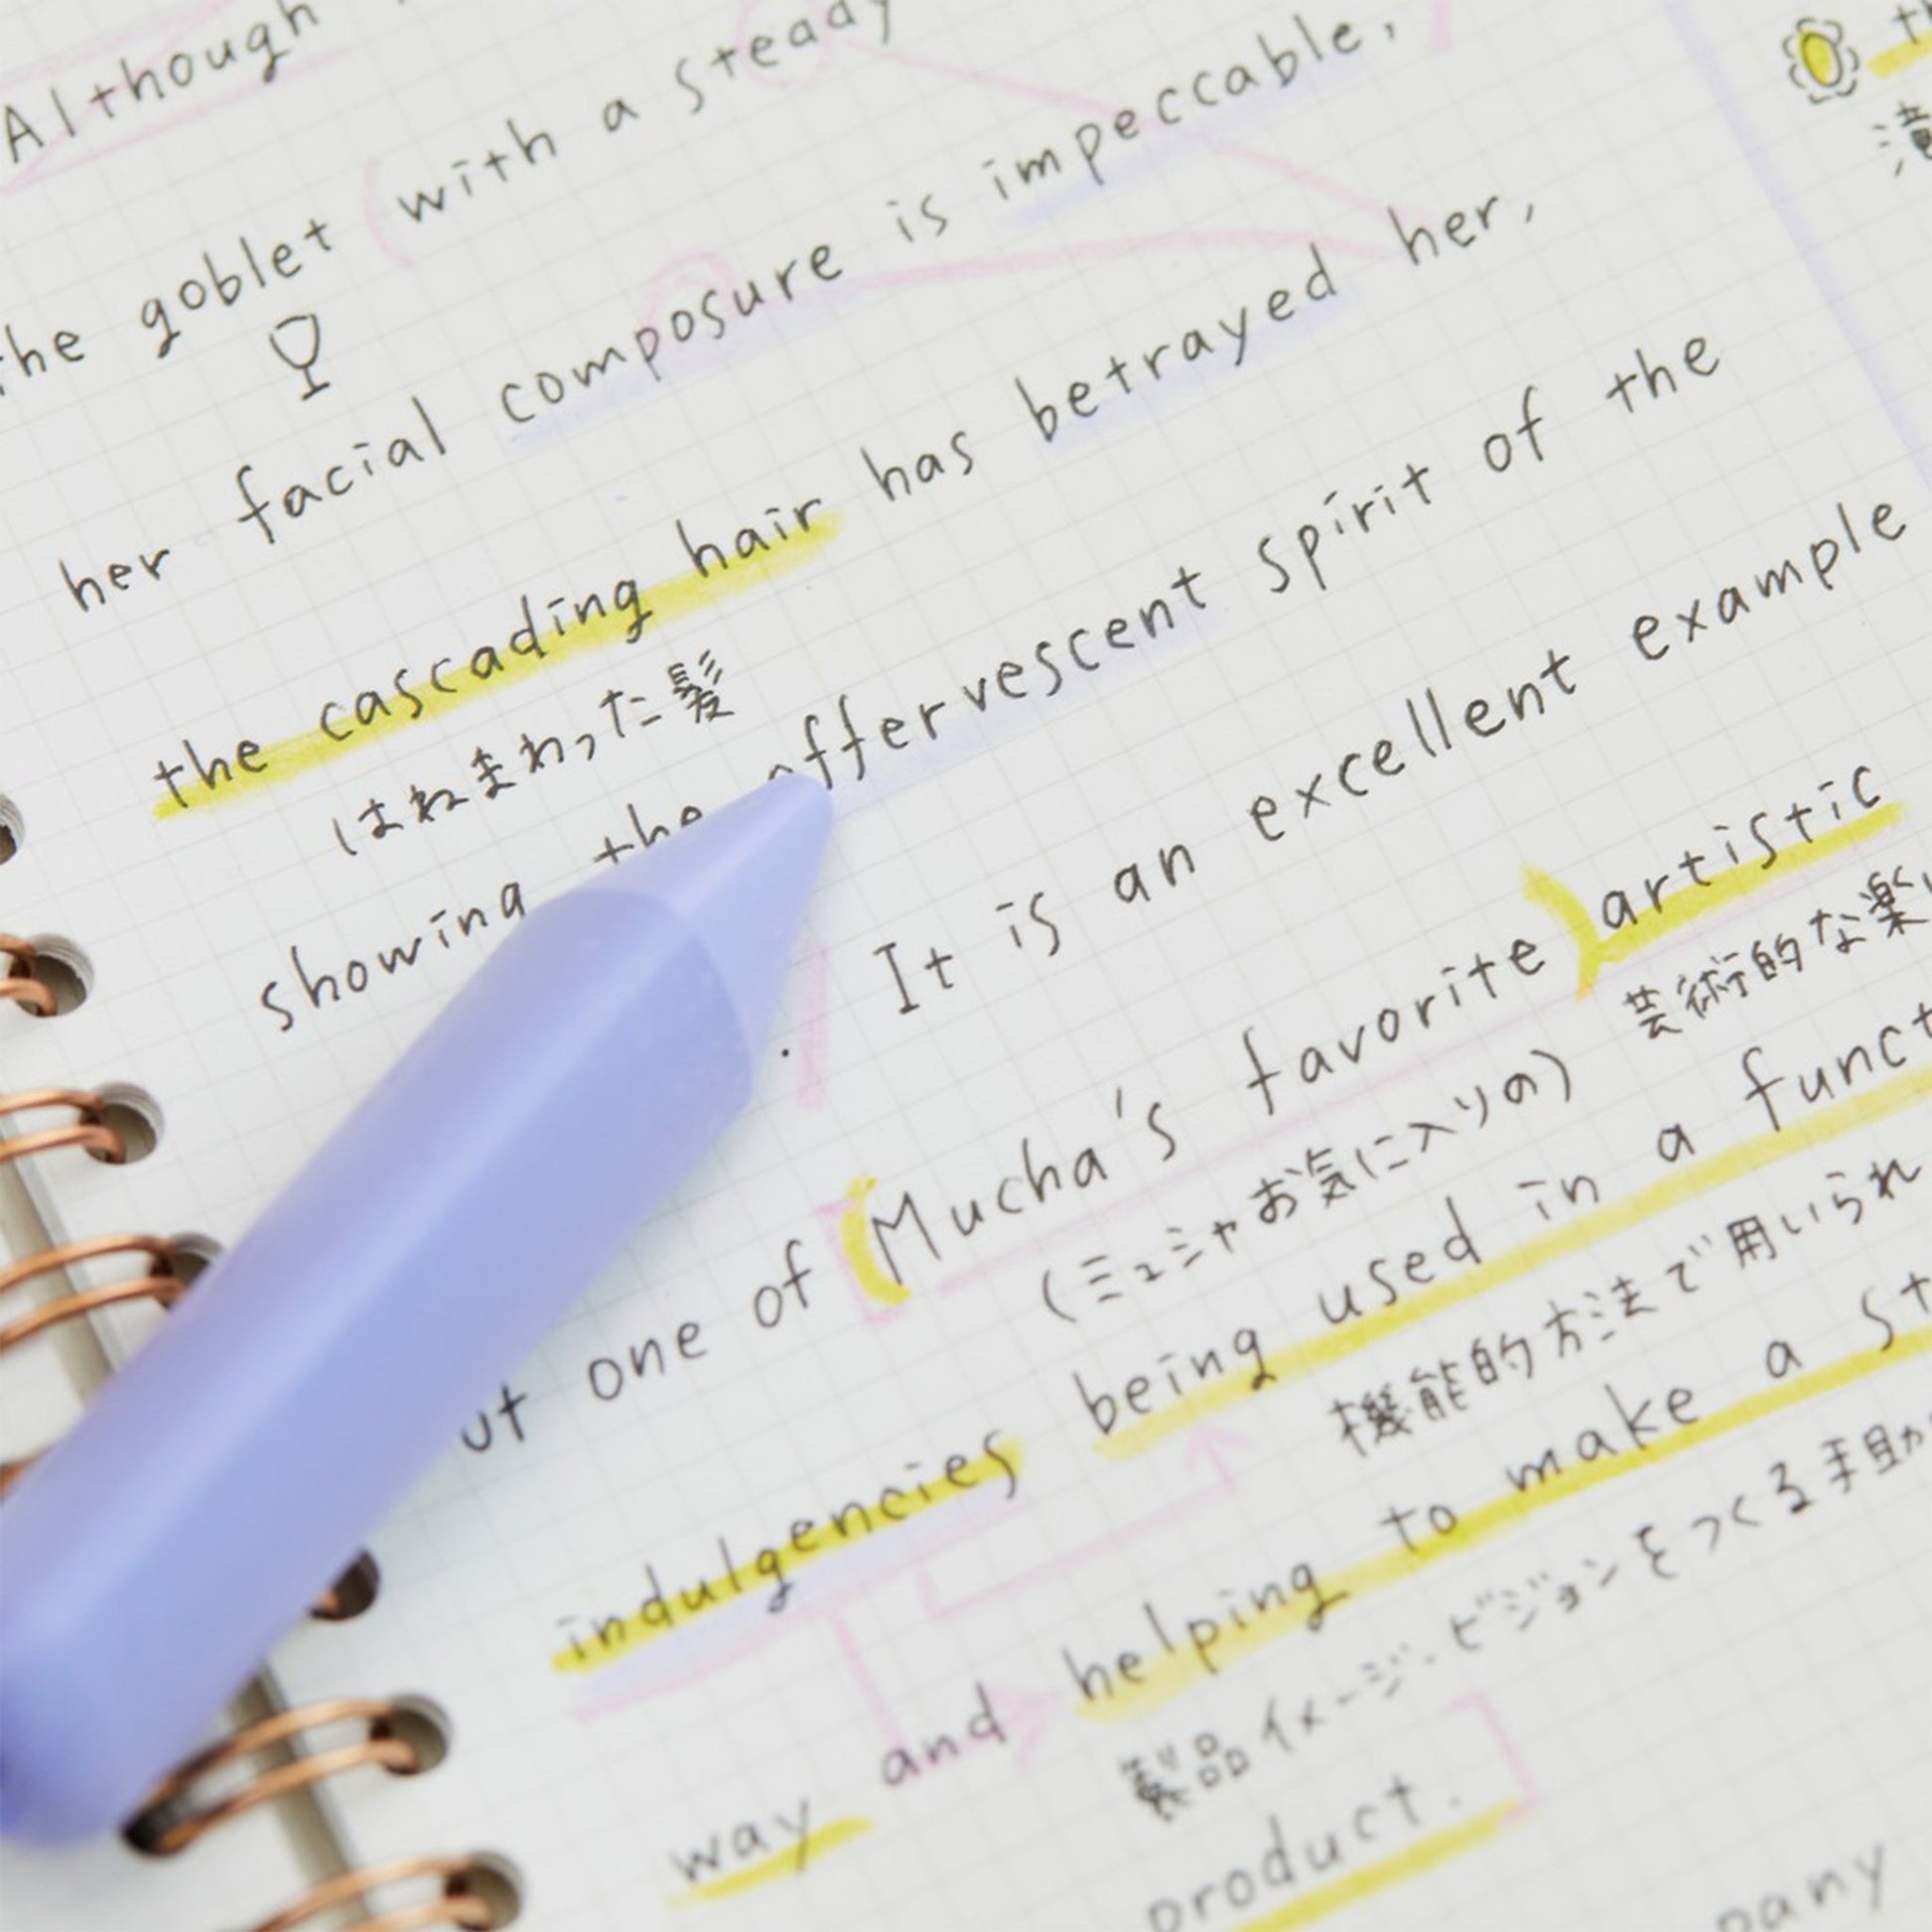 Although
the goblet with a steady
her facial composure is impeccable,
the cascading hair has betrayed her,
はねまわった髪
showing the effervescent spirit of the
It is an excellent example
one of (Mucha's favorite) artistic
(ミュシャお気に入りの) 芸術的な楽
indulgencies being used in a
機能的方法で用いられ
way and helping to make a
製品イメージ・ビジョンをつくる手助
product.